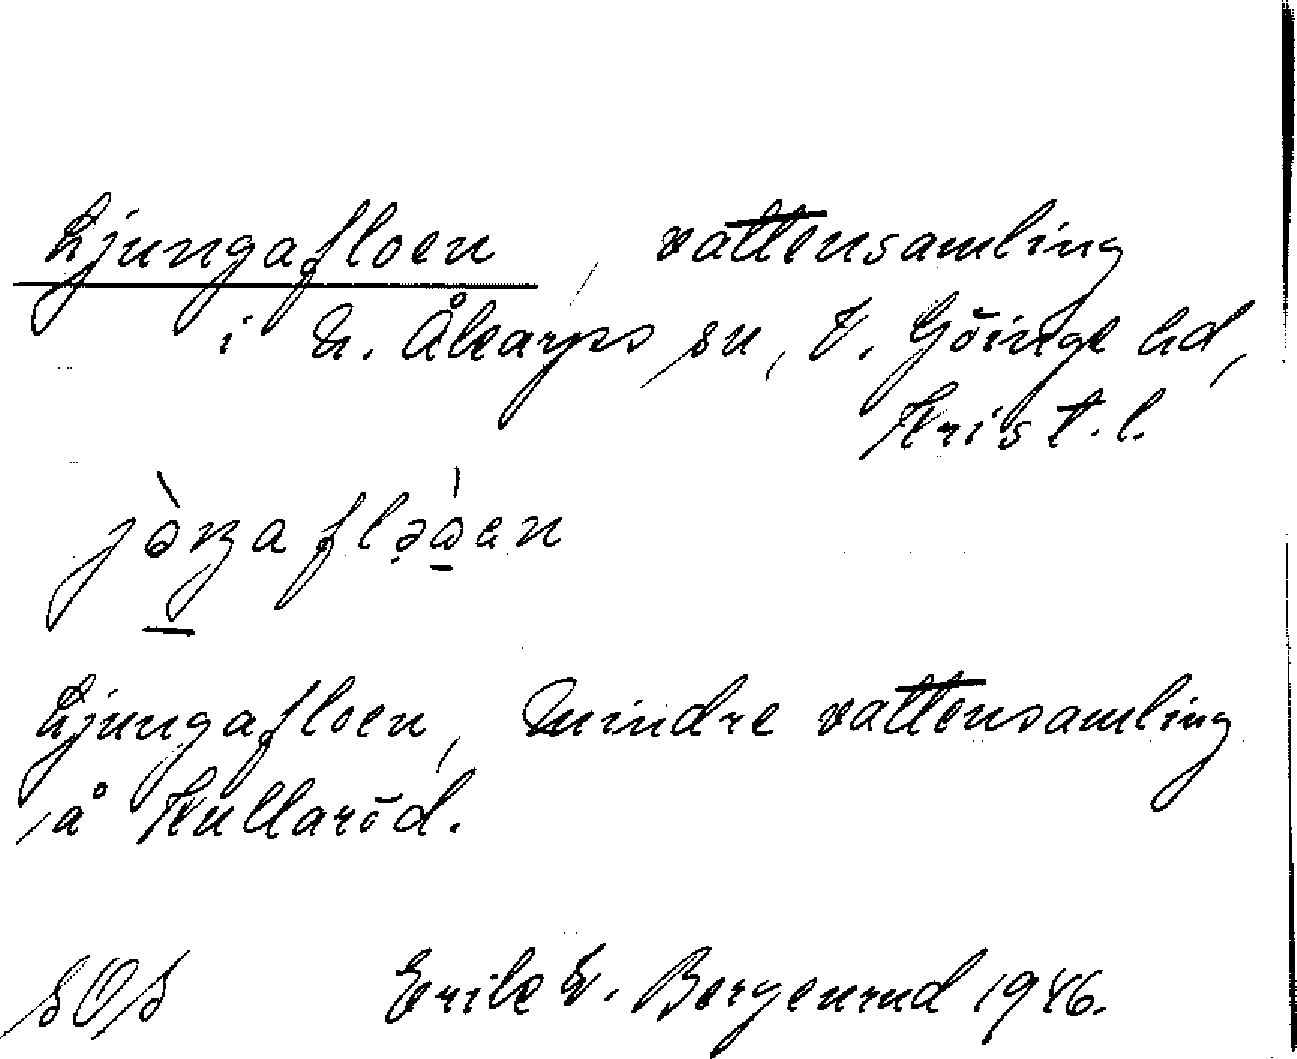 Ljungafloen, vattensamling
i N. Åkarps sn, V. Göinge hd,
Krist. l.
Ljungafloen, mindre vattensamling
å Hullaröd.
SOS Erik W. Bergenrud 1946.